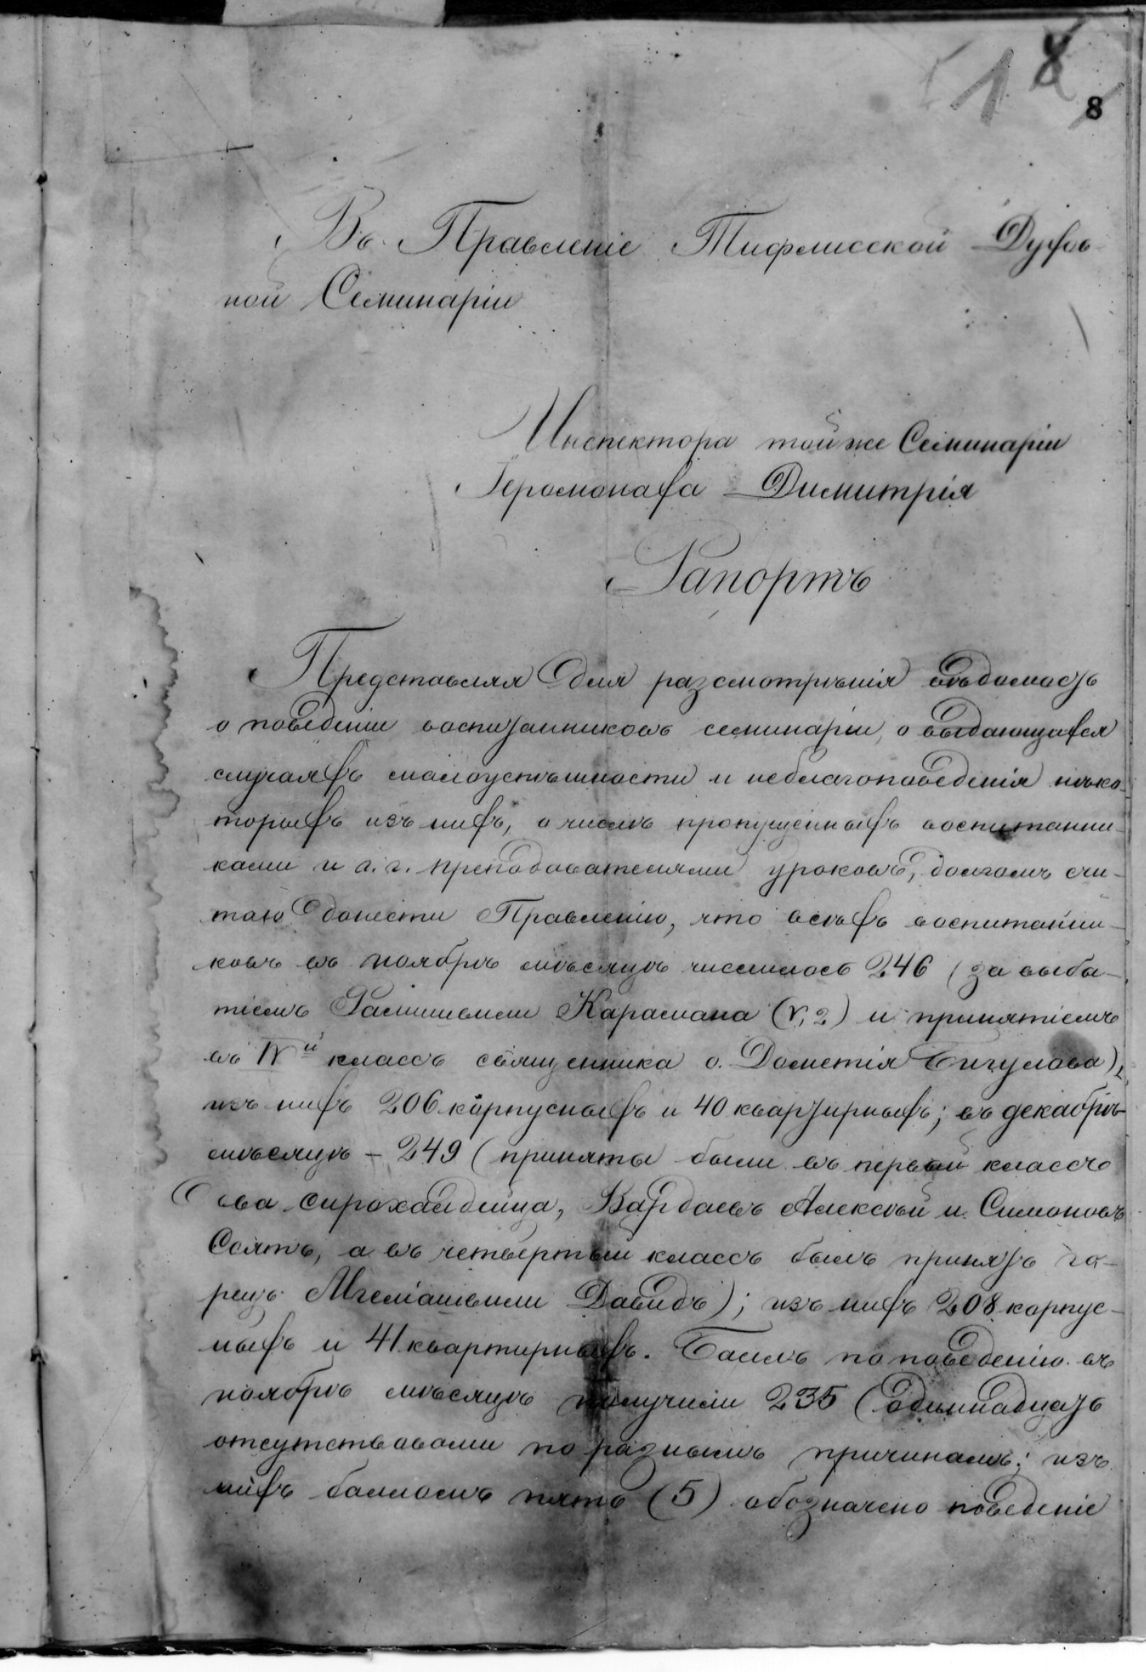 8
8
Въ Правленіе Тифлисской Духов-
ной Семинаріи
Инспектора той же Семинаріи
Іеромонаха Димитрія
Рапортъ
Представляя для разсмотрѣнія вѣдомость
о поведеніи воспитанниковъ семинаріи, о выдающихся
случаяхъ малоуспѣшности и неблагоповеденія нѣко-
торыхъ изъ нихъ, о числѣ пропущенныхъ воспитанни-
ками и г.г. преподавателями уроковъ, долгомъ счи-
таю донести Правленію, что всѣхъ воспитанни-
ковъ въ ноябрѣ мѣсяцѣ числилось 246 (за выбы-
тіемъ Карамана (V, 2) и принятіемъ
въ IVй классъ священника о. Дометія Чигулова),
изъ нихъ 206 корпусныхъ и 40 квартирныхъ; въ декабрѣ
мѣсяцѣ - 249 (приняты были въ первый классъ
два сирохалдейца, Вардаевъ Алексѣй и Симоновъ
а въ четвертый классъ былъ принятъ го-
рецъ Мгеліашвили Давидъ); изъ нихъ 208 корпус-
ныхъ и 41 квартирныхъ. Баллъ по поведенію въ
ноябрѣ мѣсяцѣ получили 235 (одиннадцать
отсутствовали по разнымъ причинамъ; изъ
нихъ балломъ пять (5) обозначено поведеніе